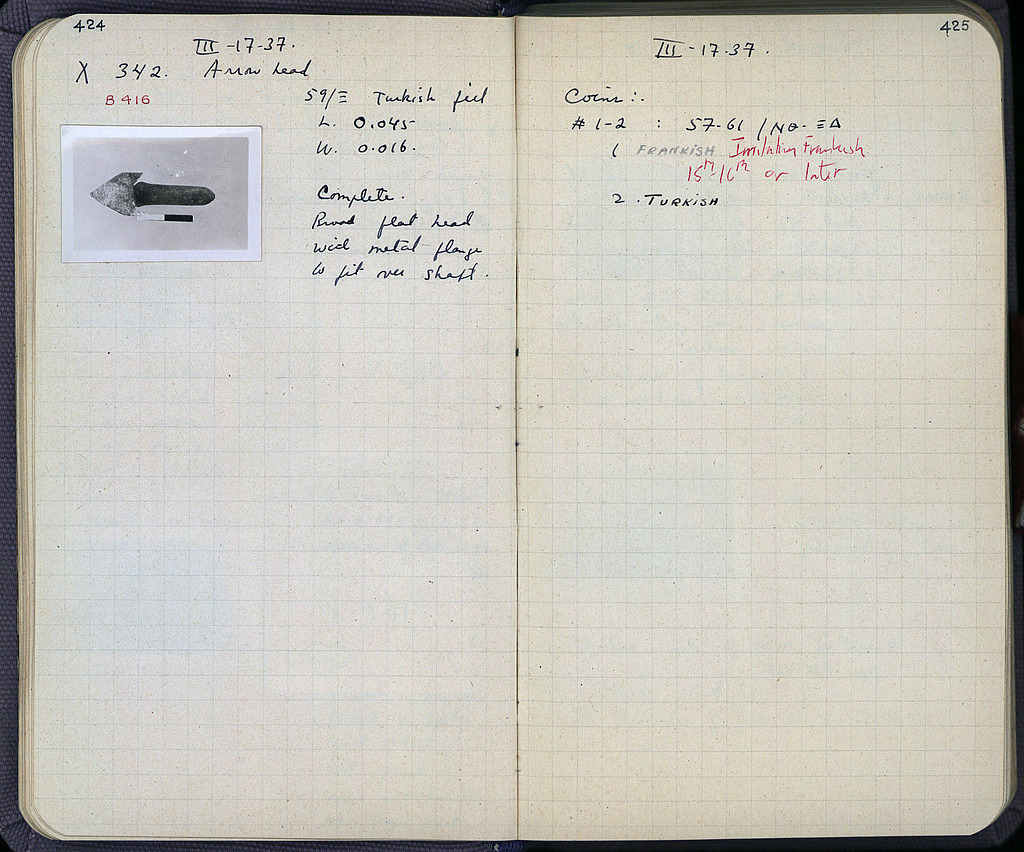 424
III -17-37.
X 342. Arrow head
B 416
59/Ξ Turkish fill
L. 0.045
W. 0.016.
Complete.
Broad flat head
with metal flange
to fit over shaft.
425
III -17-37.
Coins:.
# 1-2 : 57-61 / ΝΘ-ΞΔ
1 FRANKISH Imitation Frankish
15th-16th or later
2. TURKISH